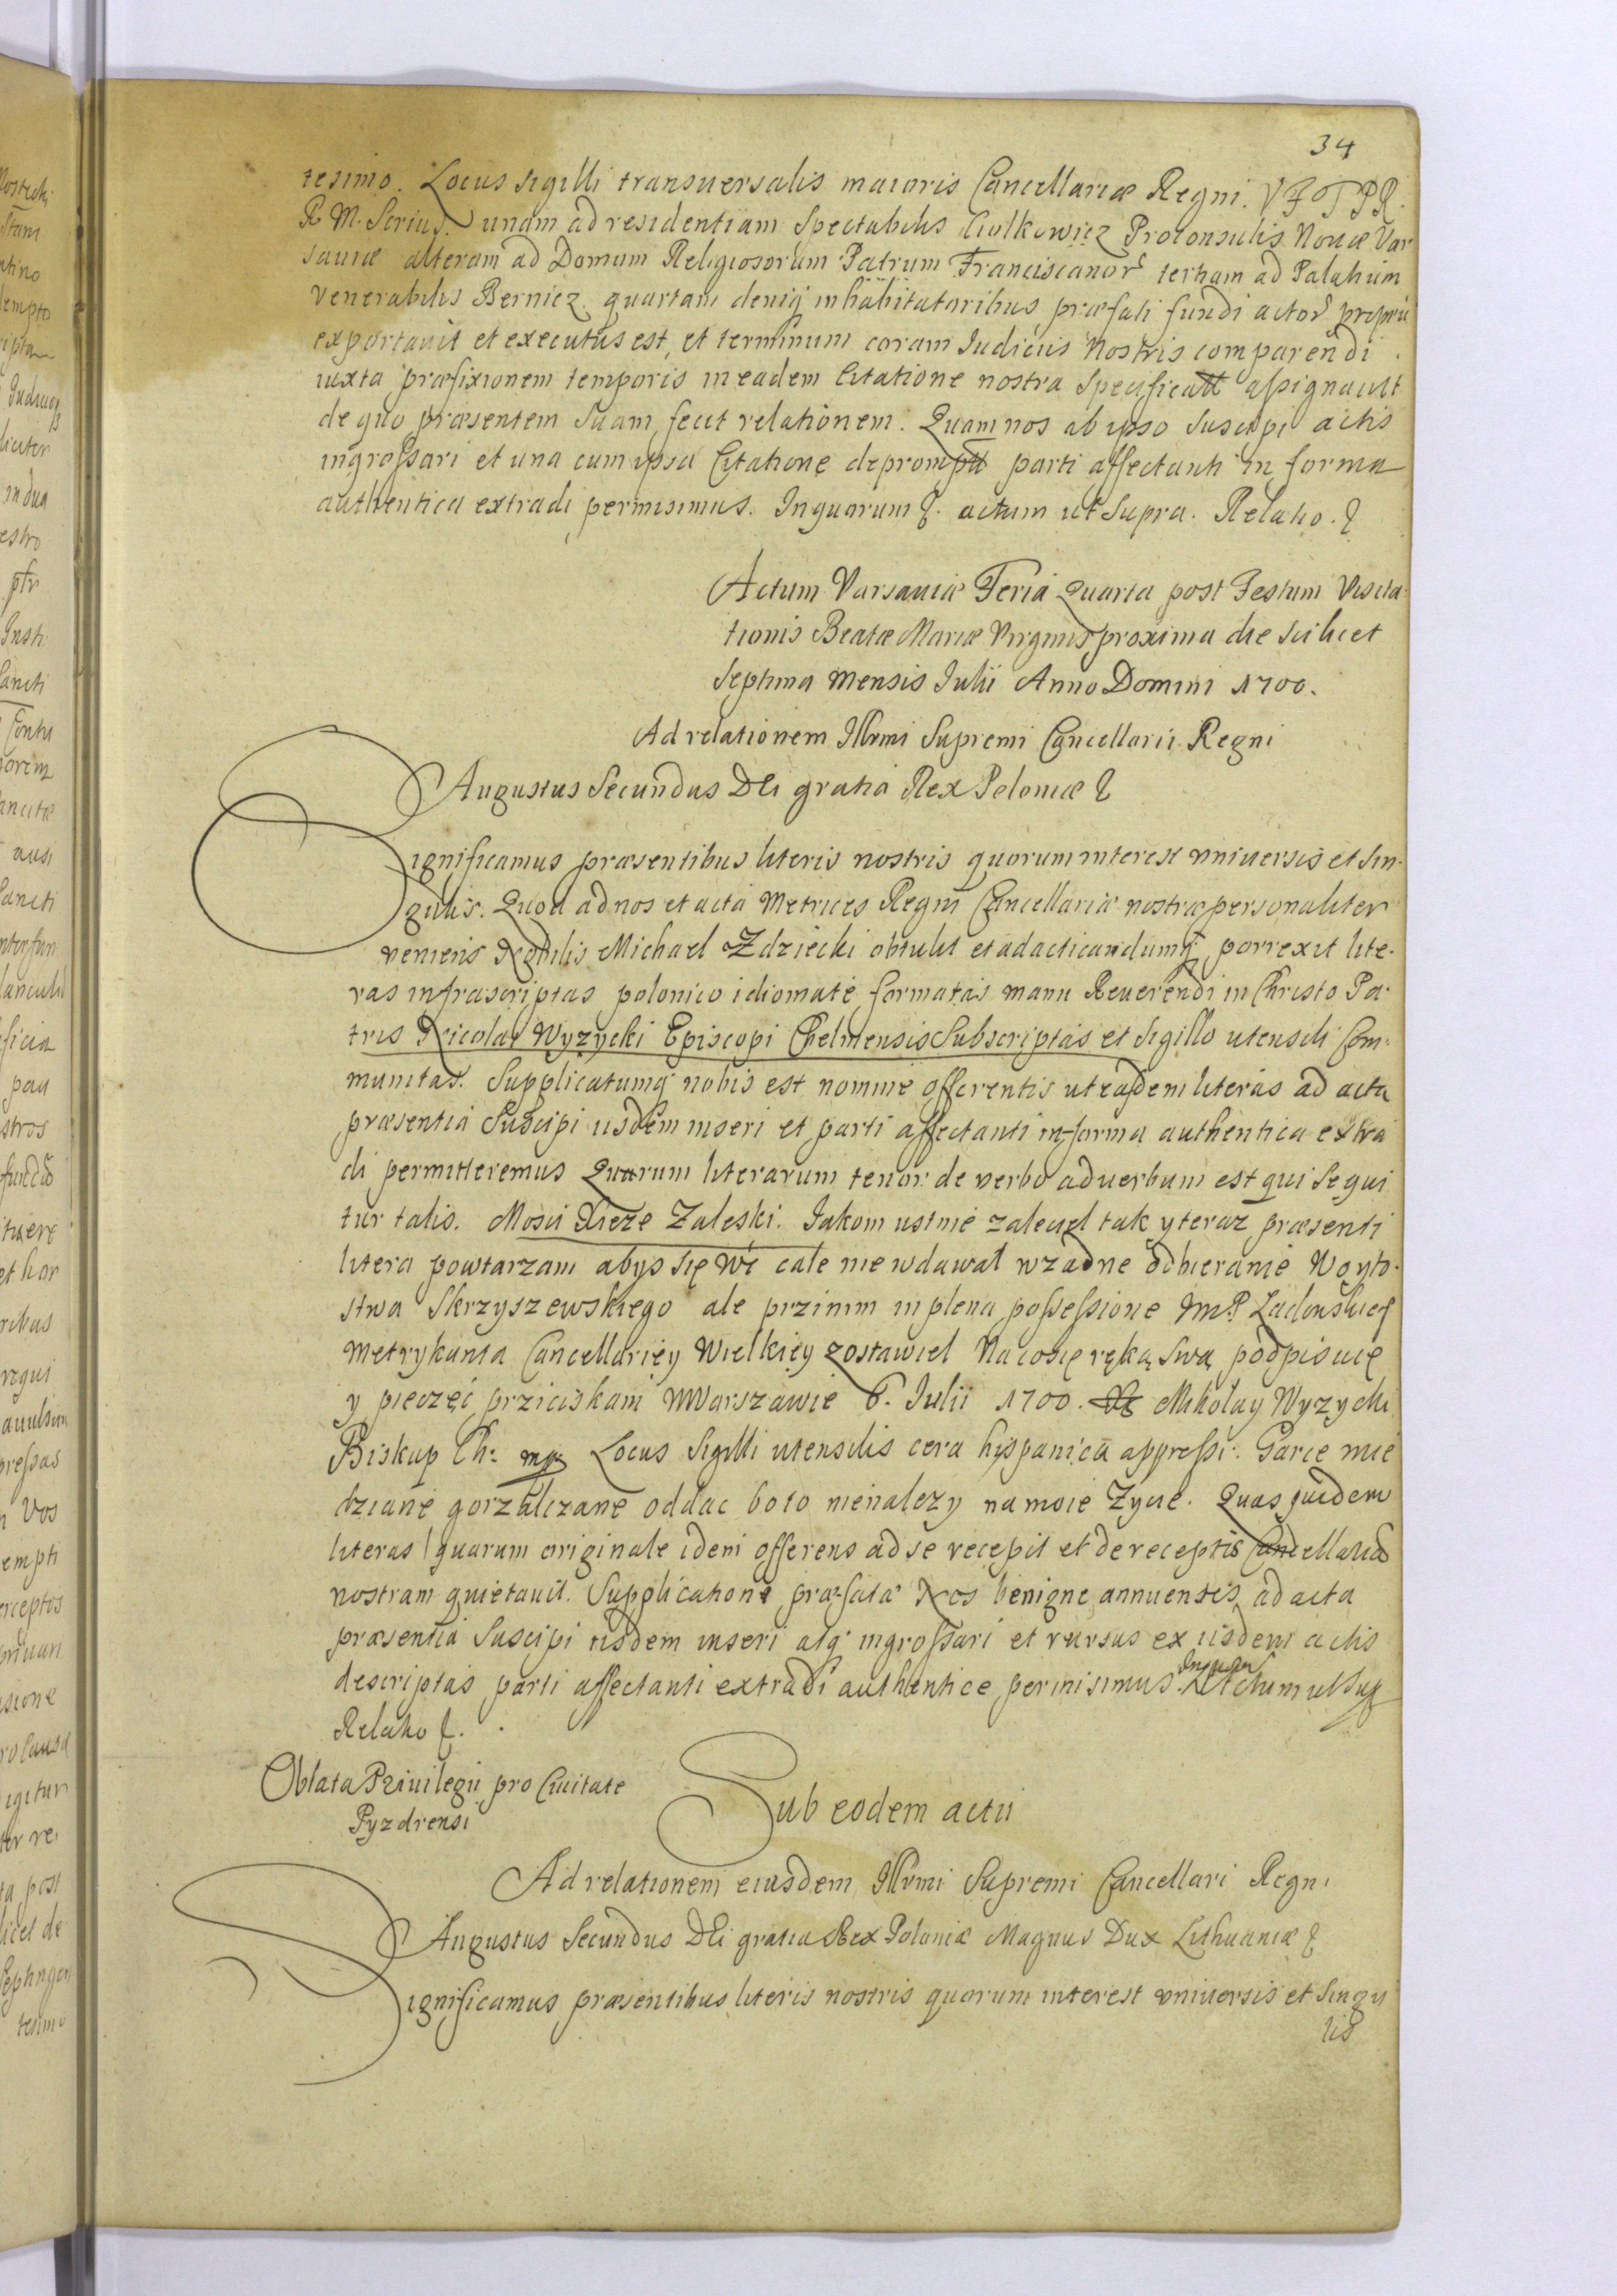 34
tesimo. Locus sigilli transuersalis maioris Cancellariæ Regni. V F T P R.
R M. Serius. unam ad residentiam Spectabilis Ciolkowicz Proconsulis Nouæ Var
sauiæ alteram ad Domum Religiosorum Patrum Franciscanor tertiam ad Palatium
Venerabilis Bernicz quartam deniq inhabitatoribus præfati fundi actor proprii
exportauit et executus est, et terminum coram Iudiciis Nostris comparendi
iuxta præfixionem temporis in eadem Citatione nostra Specificatt assignauit
de quo præsentem Suam fecit relationem. Quam nos ab ipso Suscipi actis
ingrossari et una cum ipsa Citatione deprompta parti affectanti in forma
authentica extradi permisimus. In quorum &. actum ut Supra. Relatio. &
Actum Varsauiæ Feria Quarta post Festum Visita
tionis Beatæ Mariæ Virginis proxima die Scilicet
Septima Mensis Julii Anno Domini 1700.
Ad relationem Illrmi Supremi Cancellarii Regni
Augustus Secundus DEi gratia Rex Poloniæ &
Significamus præsentibus literis nostris quorum interest vniuersis et Sin-
gulis. Quod ad nos et acta Metrices Regni Cancellariæ nostræ personaliter
veniens Nobilis Michael Zdziecki obtulit et ad acticandumq porrexit lite-
ras infrascriptas polonico idiomate formatas manu Reuerendi in Christo Pa-
tris Nicolai Wyzycki Episcopi Chelmensis Subscriptas et Sigillo utensili Com-
munitas. Supplicatumq nobis est nomine offerentis ut easdem literas ad acta
præsentia Suscipi iisdem inseri et parti affectanti in forma authentica extra
di permitteremus Quarum literarum tenor de verbo ad uerbum est qui Sequi
tur talis. Mosci Xieże Zaleski. Iakom ustnie zalecieł tak y teraz præsenti
litera powtarzam abys się we cale nie wdawał w zadne odbieranie Woyto-
stwa Skrzyszewskiego ale przi nim in plena possessione ImP Ladonskieg
Metrykanta Cancellariey Wielkiey zostawieł Na co się ręką Swą podpisuię
y pieczęć prziciskam w Warszawie 6. Julii 1700. Mikołay Wyzycki
Biskup Ch: mp Locus Sigilli utensilis cera hispanica appressi. Garce mie
dziane gorzałczane oddac bo to nienalezy na moie Zycie. Quas quidem
literas quarum originale idem offerens ad se recepit et de receptis Cancellaria
nostram quietauit. Supplicatione præfata Nos benigne annuentes, ad acta
præsentia Suscipi iisdem inseri atq ingrossari et rursus ex iisdem actis
descriptas parti affectanti extradi authentice permisimus. In quor Actum ut Sup
Relatio &.
Oblata Priuilegii pro Ciuitate
Pyzdrensi
Sub eodem actu
Ad relationem eiusdem Illrmi Supremi Cancellari Regni
Augustus Secundus DEi gratia Rex Poloniæ Magnus Dux Lithuaniæ &
Significamus præsentibus literis nostris quorum interest vniuersis et Singu
lis